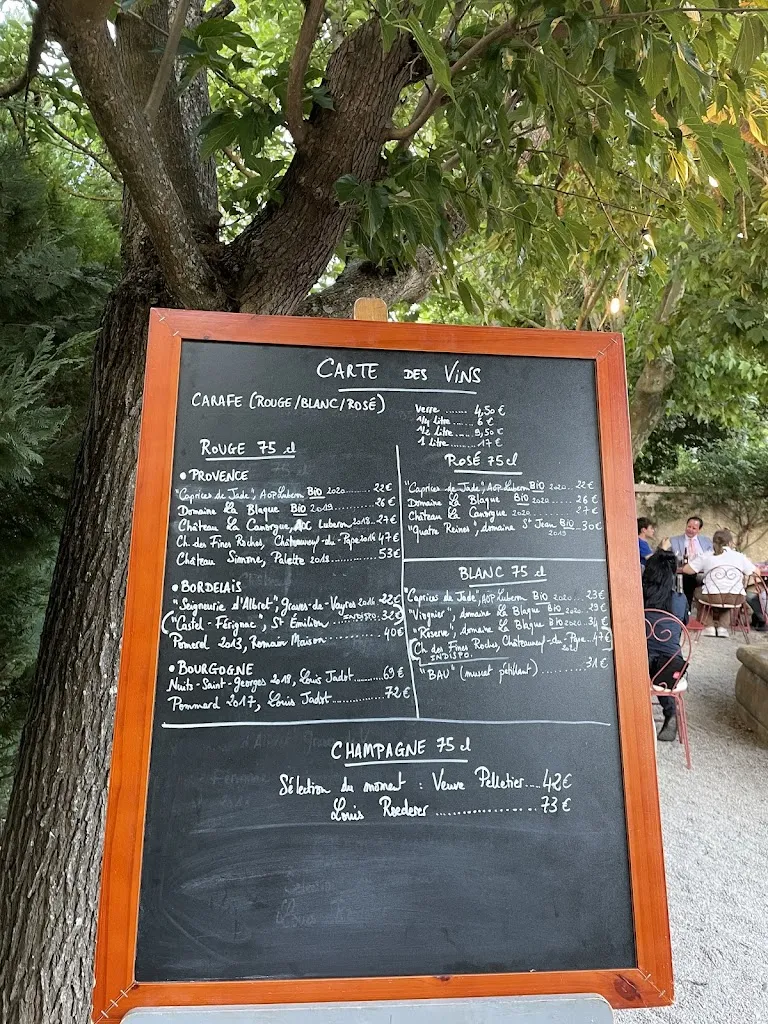 CARTE DES VINS
CARAFE (ROUGE/BLANC/ROSÉ)
Verre ....... 4,50 €
1/4 litre ..... 6 €
1/2 litre ..... 9,50 €
1 litre ..... 17 €
ROUGE 75 cl
• PROVENCE
"Caprices de Jade", AOP Luberon BIO 2020 ...... 22€
Domaine La Blaque BIO 2019 ......... 26 €
Château La Canorgue, AOC Luberon 2018.. 27€
Ch. des Fines Roches, Châteauneuf-du-Pape 2016 47€
Château Simone, Palette 2018 ............ 53€
• BORDELAIS
"Seigneurie d'Albret", Graves-de-Vayres 2016 .. 22€
("Castel-Férignac", St Emilion ... INDISPO. 32€)
Pomerol 2013, Romain Maison .......... 40€
• BOURGOGNE
Nuits-Saint-Georges 2018, Louis Jadot ....... 69 €
Pommard 2017, Louis Jadot ........... 72 €
ROSÉ 75 cl
"Caprices de Jade", AOP Luberon BIO 2020 ... 22€
Domaine La Blaque BIO 2020 ...... 26 €
Château La Canorgue 2020 ......... 27€
"Quatre Reines", domaine St Jean BIO 2019 .. 30€
BLANC 75 cl
"Caprices de Jade, AOP Luberon BIO 2020 .... 23€
"Viognier", domaine La Blaque BIO 2020 ... 29€
"Réserve", domaine La Blaque BIO 2020 ... 34 €
(Ch des Fines Roches, Châteauneuf-du-Pape 2021 .. 47€)
INDISPO.
"BAU" (muscat pétillant) ............ 31€
CHAMPAGNE 75 cl
Sélection du moment : Veuve Pelletier.... 42€
Louis Roederer ................ 73 €